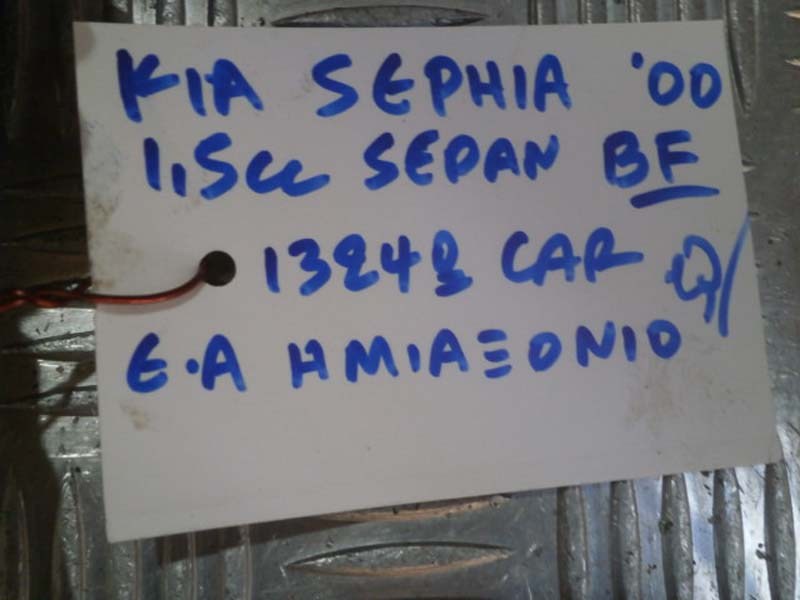 KIA SEPHIA '00
1,5cc SEDAN BF
CAR
E·A ΗΜΙΑΞΟΝΙΟ